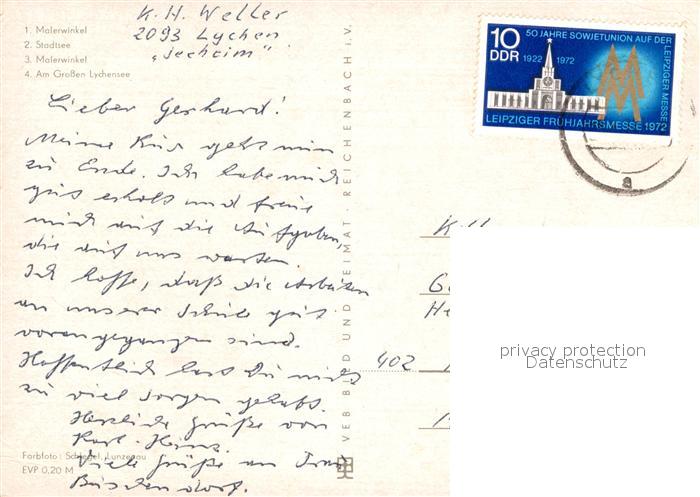 K. H. Weller
2093 Lychen
"Seeheim"
1. Malerwinkel
2. Stadtsee
3. Malerwinkel
4. Am Großen Lychensee
Lieber Gerhard!
Meine Kur geht nun
zu Ende. Ich habe mich
gut erholt und freue
mich auf die Aufgaben,
die auf uns warten.
Ich hoffe, daß die Arbeiten
an unserer Schule gut
vorangegangen sind.
Hoffentlich hast Du nicht
zu viel Sorgen gehabt.
Herzliche Grüße von
Karl-Heinz.
Viele Grüße an
Farbfoto: Schlegel, Lunzenau
EVP 0,20 M
VEB BILD UND HEIMAT · REICHENBACH i. V.
10
DDR
50 JAHRE SOWJETUNION AUF DER LEIPZIGER MESSE
1922 1972
LEIPZIGER FRÜHJAHRSMESSE 1972
a
402
privacy protection
Datenschutz